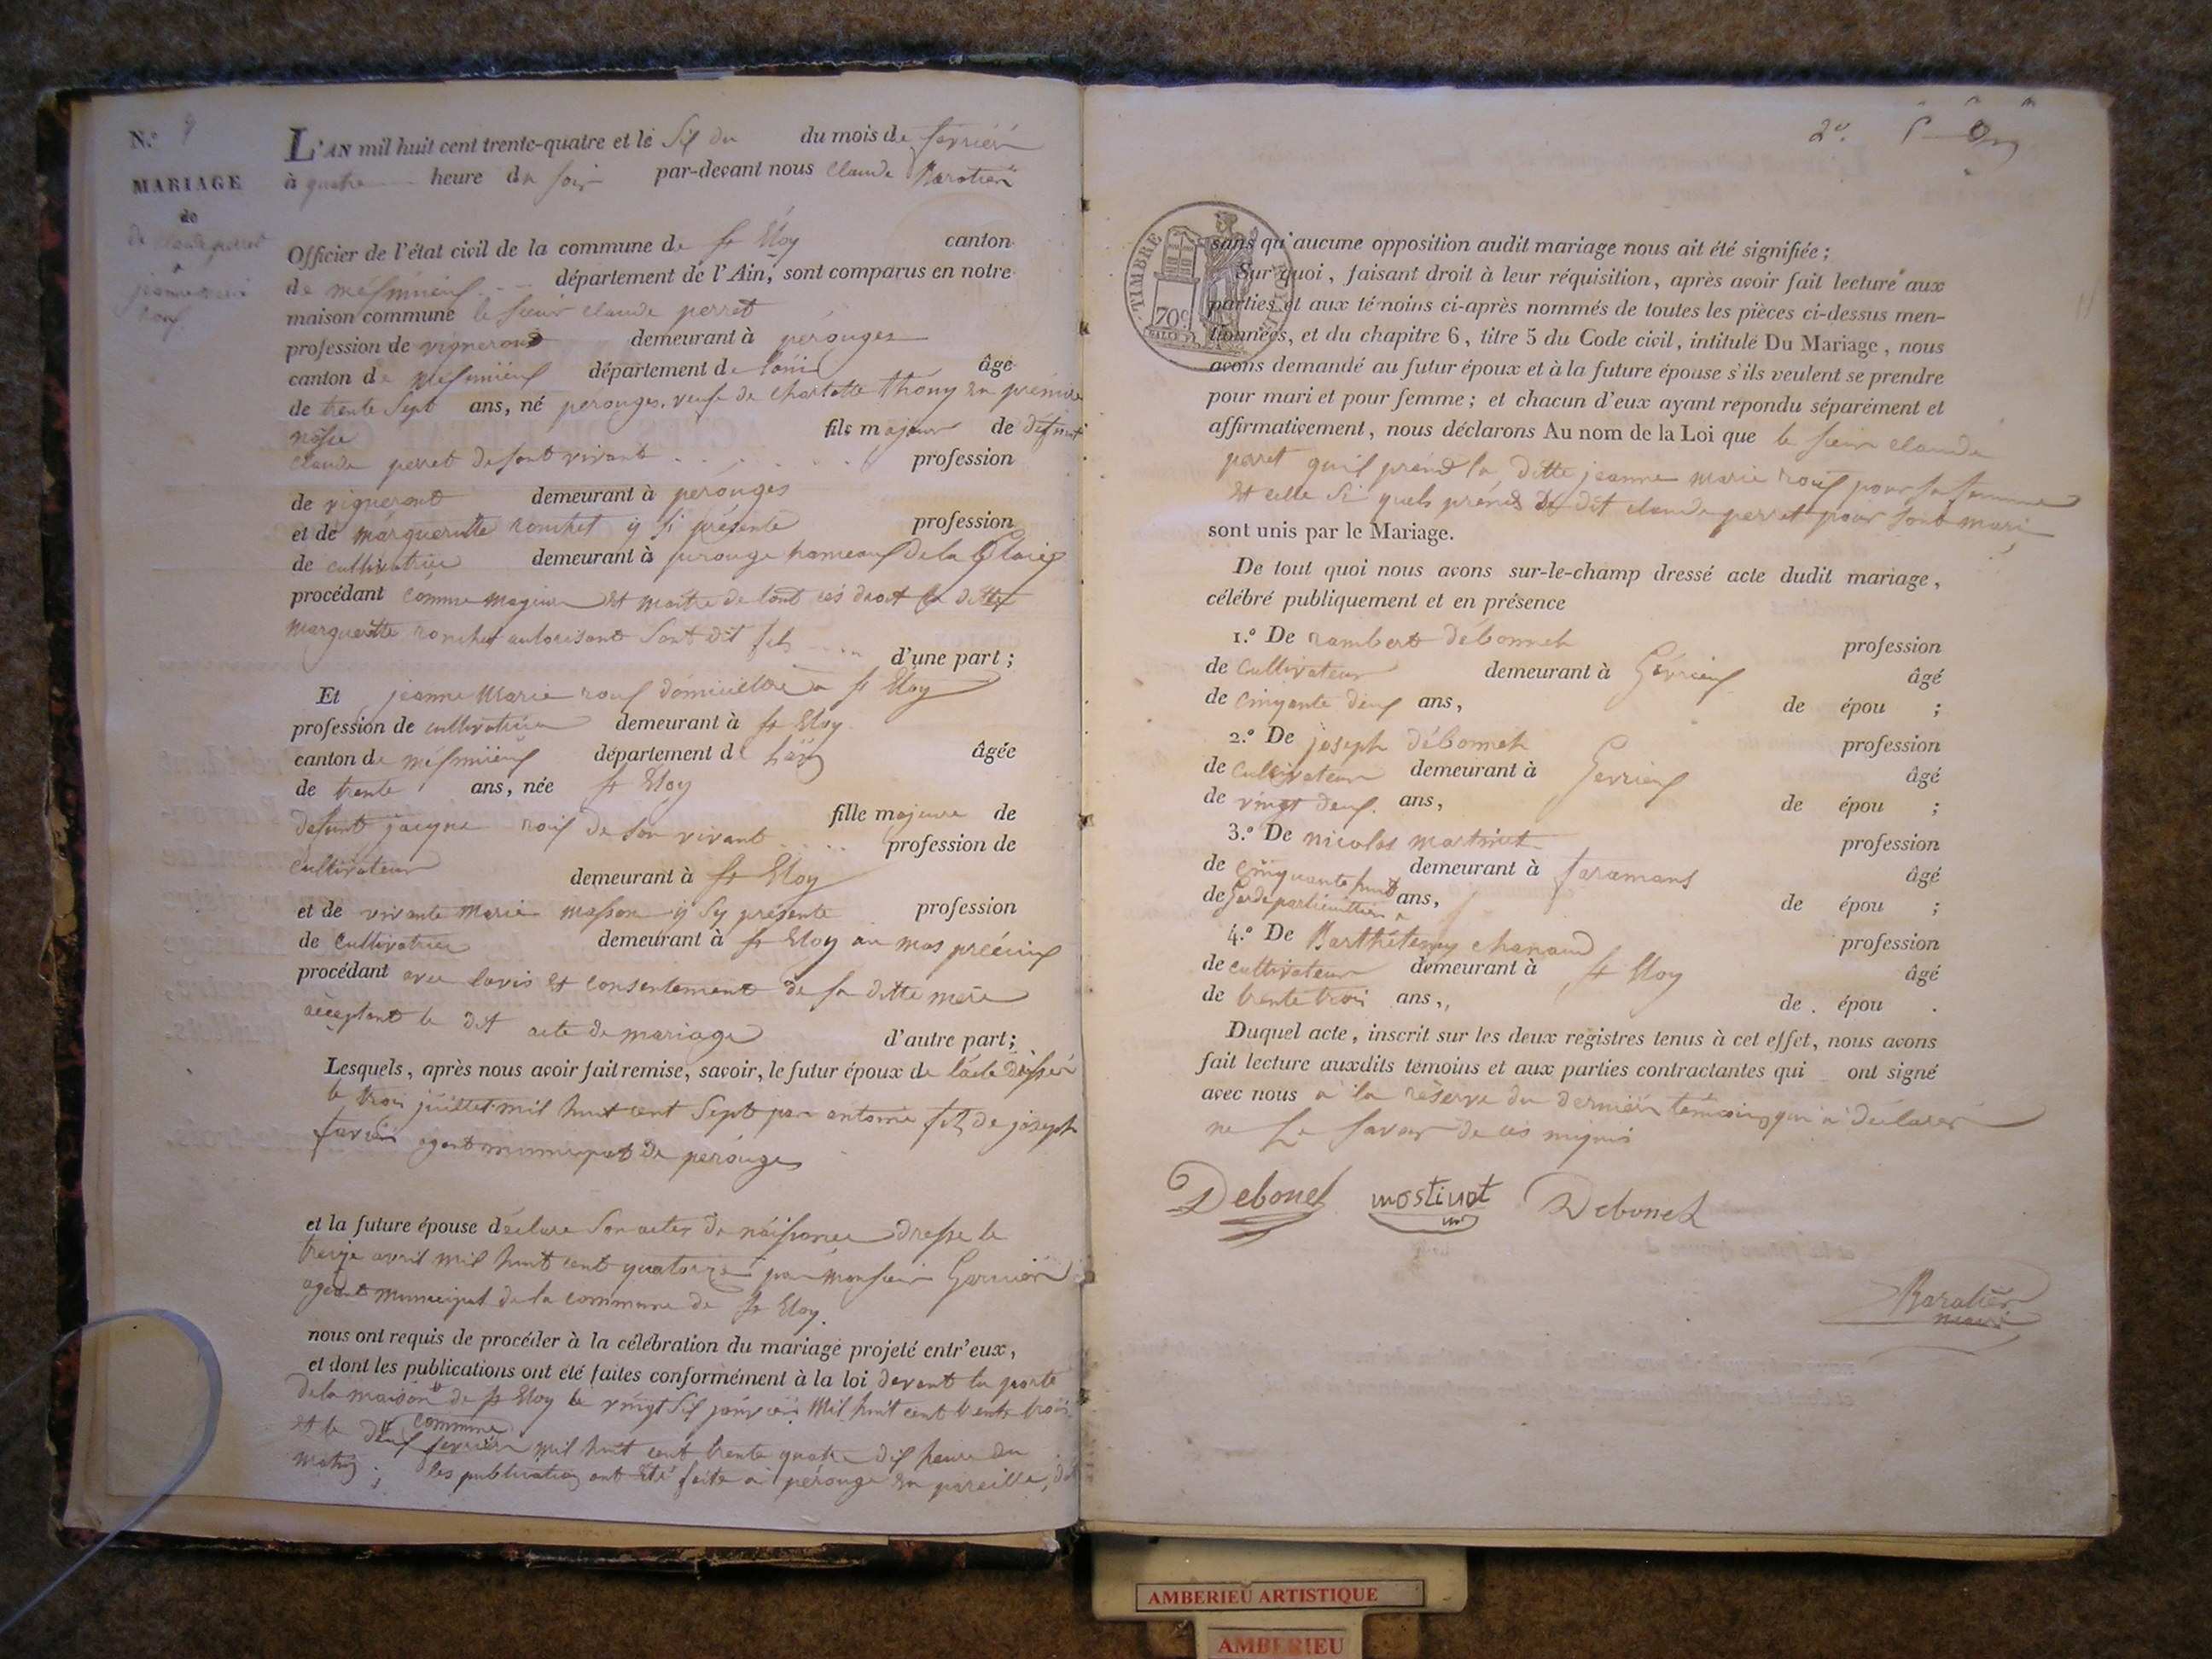 N.º
MARIAGE
de
de claude perret
&
jeanne marie
roux
L'AN mil huit cent trente-quatre et le Six du du mois de fevrier
à quatre heure du soir par-devant nous claude Baratier
Officier de l'état civil de la commune de St Eloy canton
de mesmieux département de l'Ain, sont comparus en notre
maison commune le sieur claude perret
profession de vigneront demeurant à pérouges
canton de mesmieux département de l'ain âgé
de trente sept ans, né perouges, veuf de charlotte thony en premiere
nosse fils majeur de defunt
claude perret de sont vivant profession
de vigneront demeurant à perouges
et de marguerite ronchet y si présente profession
de cultivatrice demeurant à perouge hameaux de la
procédant comme majeur et maitre de tout ces droit la ditte
marguerite ronchet autorisant sont dit fils d'une part ;
Et jeanne Marie roux domicilliée a St Eloy
profession de cultivatrice demeurant à St Eloy
canton de mesmieux département de L'ain âgée
de trente ans, née St Eloy
fille majeure de
defunt jacque roux de son vivant profession de
cultivateur
demeurant à St Eloy
et de vivante Marie masson y sy présente profession
de cultivatrice demeurant à St Eloy au mas
procédant avec lavis et consentement de sa ditte mere
acceptant le dit acte de mariage d'autre part ;
Lesquels, après nous avoir fait remise, savoir, le futur époux de lacte dresser
le trois juillet mil huit cent sept par antoine fils de joseph
favier agent municipat de pérouges
et la future épouse déclare son actes de naissance dresse le
treize avril mil huit cent quatorze par monsieur Garnier
agent municipat de la commune de St Eloy.
nous ont requis de procéder à la célébration du mariage projeté entr'eux,
et dont les publications ont été faites conformément à la loi devant la porte
de la maison de St Eloy le vingt six janvier mil huit cent trente trois
commune
et le deux fevrier mil huit cent trente quatre dix heure du
matin ; les publication ont été faite a pérouge en pareille
2e.
TIMBRE
70c
sans qu'aucune opposition audit mariage nous ait été signifiée ;
Sur quoi, faisant droit à leur réquisition, après avoir fait lecture aux
parties et aux témoins ci-après nommés de toutes les pièces ci-dessus men-
tionnées, et du chapitre 6, titre 5 du Code civil, intitulé Du Mariage, nous
avons demandé au futur époux et à la future épouse s'ils veulent se prendre
pour mari et pour femme ; et chacun d'eux ayant répondu séparément et
affirmativement, nous déclarons Au nom de la Loi que le sieur claude
perret quil prend la ditte jeanne marie roux pour sa femme
et celle si quels prend le dit claude perret pour sont mari
sont unis par le Mariage.
De tout quoi nous avons sur-le-champ dressé acte dudit mariage,
célébré publiquement et en présence
1.º De rambert débonnet profession
de cultivateur demeurant à Gevrieux âgé
de cinqante deux ans, de épou ;
2.º De joseph débonnet profession
de cultivateur demeurant à Gevrieux âgé
de vingt deux ans, de épou ;
3.º De nicolas martinet profession
de cinquante huit demeurant à faramans âgé
de Garde particullier ans, de épou ;
4.º De Barthélemy chanaud profession
de cultivateur demeurant à St Eloy âgé
de trente trois ans, de épou .
Duquel acte, inscrit sur les deux registres tenus à cet effet, nous avons
fait lecture auxdits témoins et aux parties contractantes qui ont signé
avec nous a la réserve du dernier témoins qui a déclarer
ne le savoir de ces
Debonet mostinot Debonet
Baratier
maire
AMBERIEU ARTISTIQUE
AMBERIEU